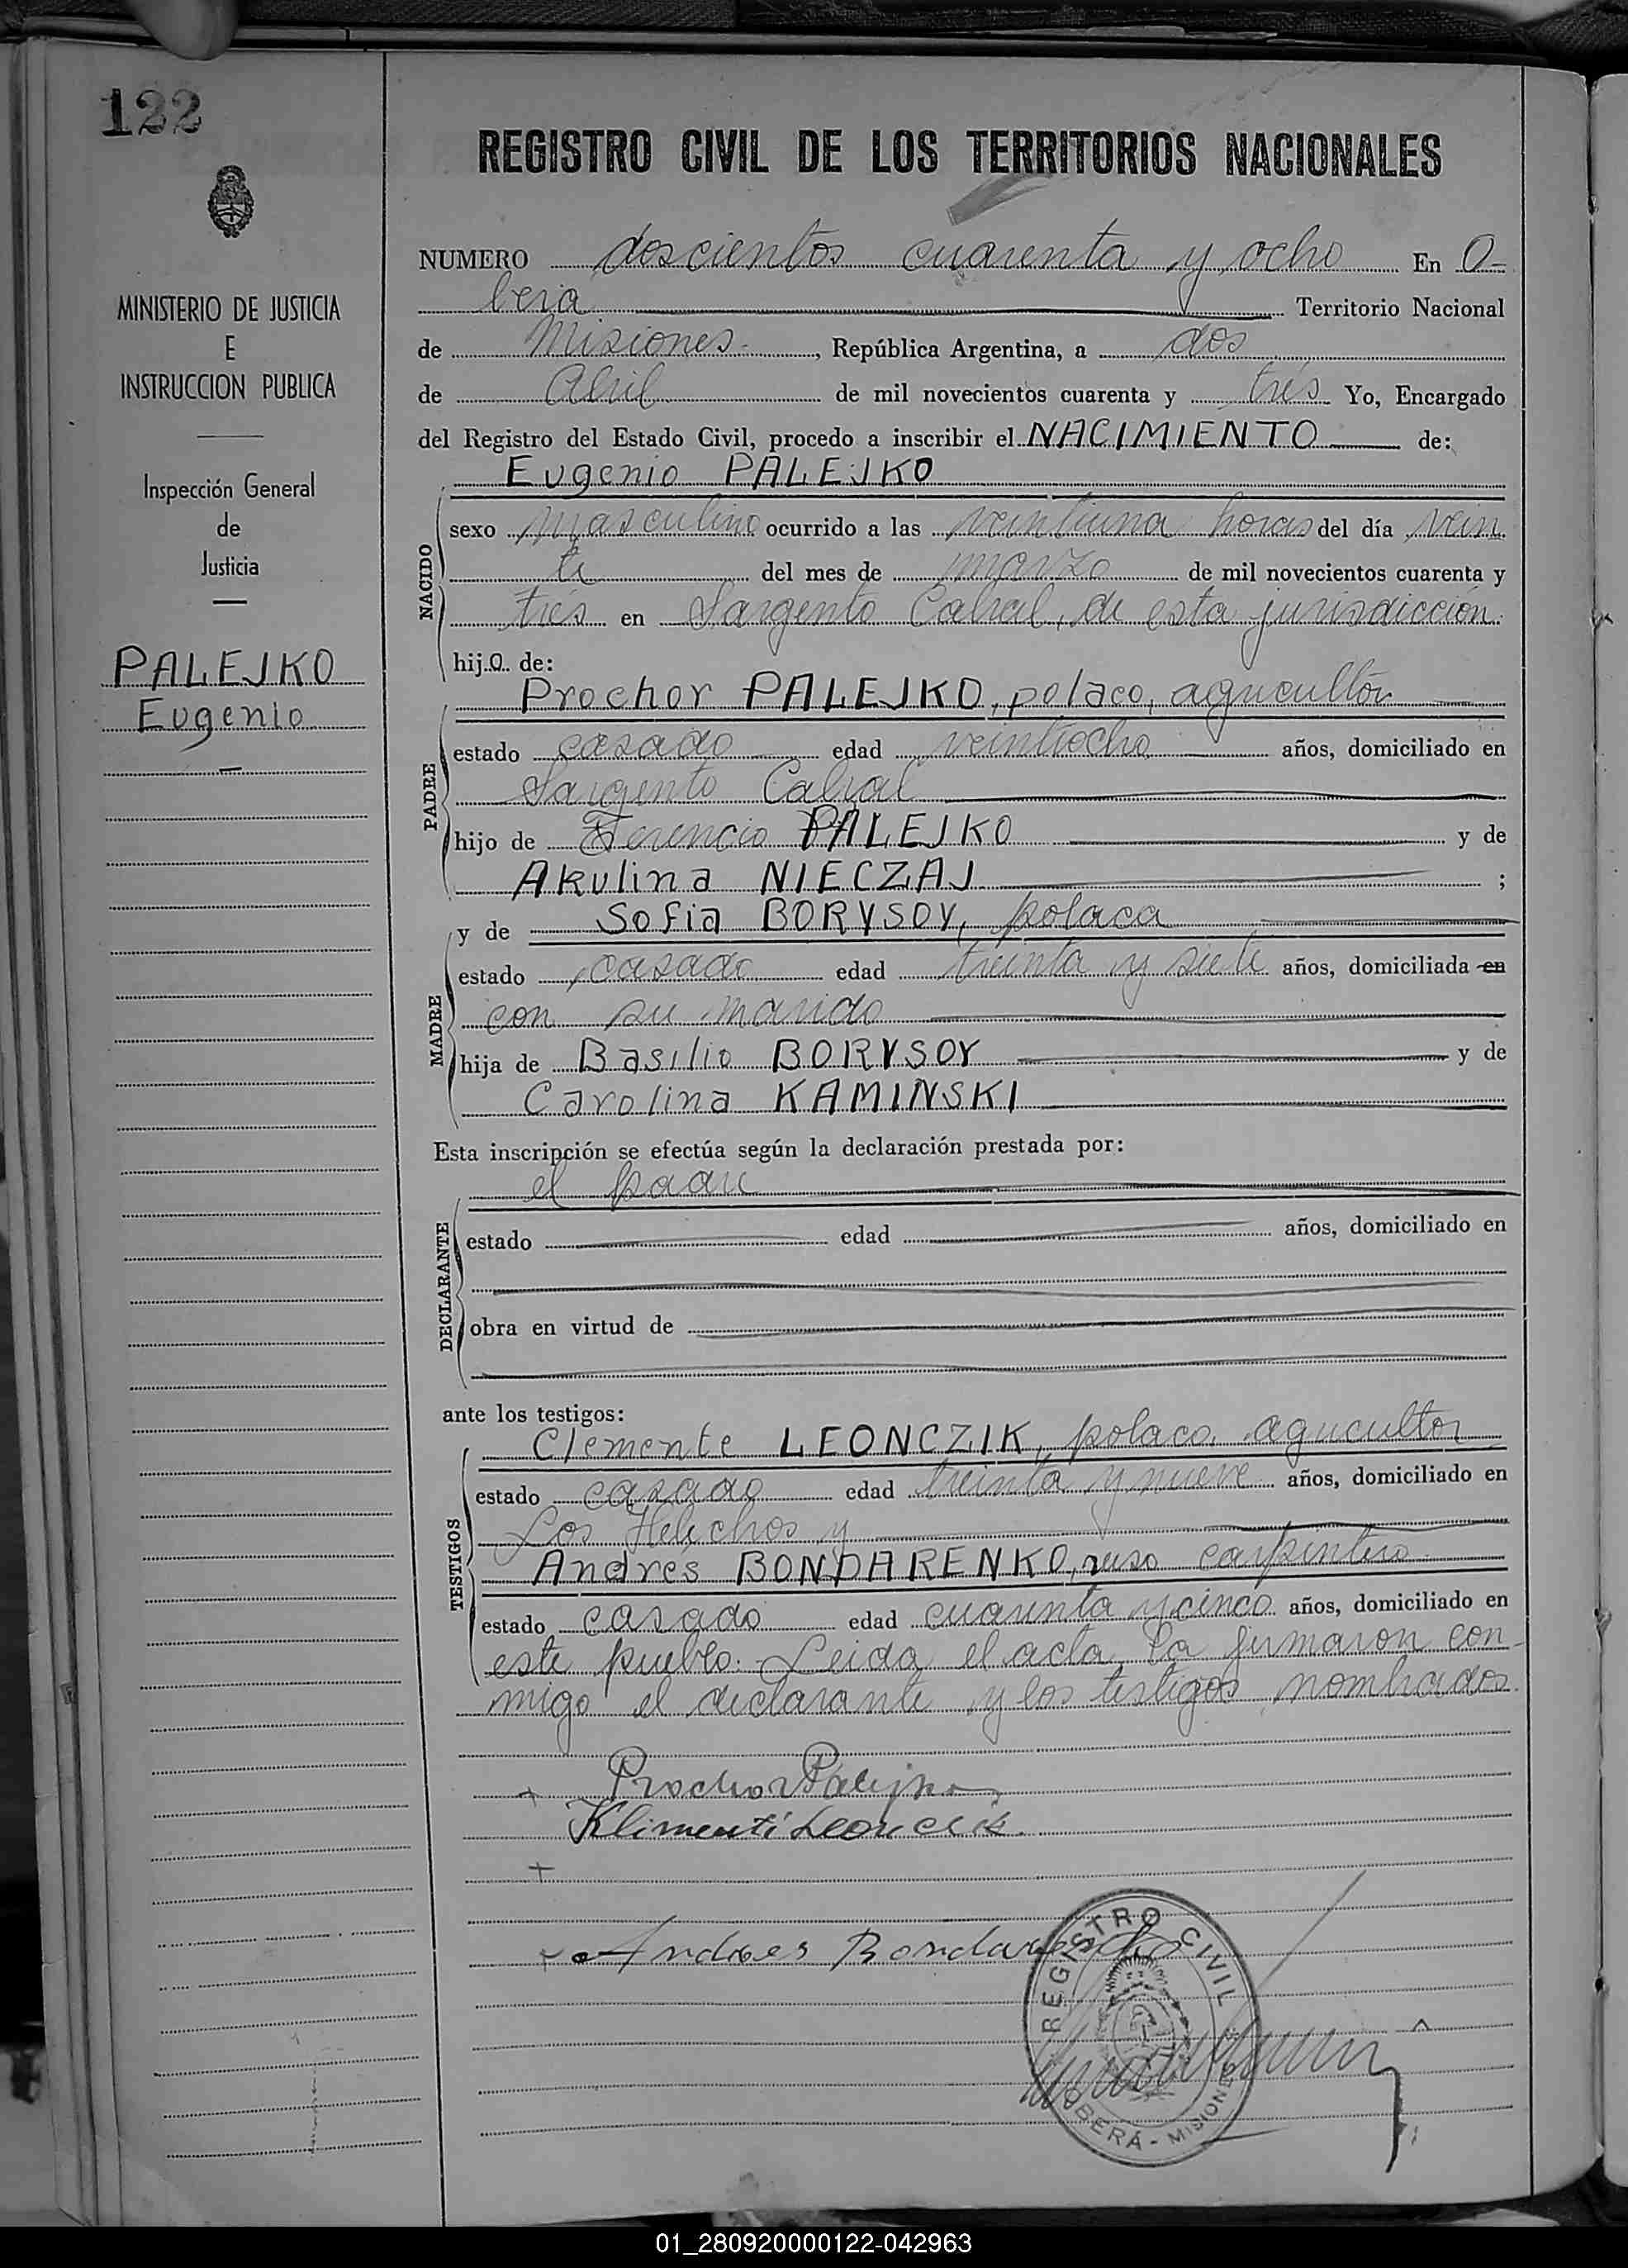 122
MINISTERIO DE JUSTICIA
E
INSTRUCCION PUBLICA
Inspección General
de
Justicia
PALEJKO
Eugenio
REGISTRO CIVIL DE LOS TERRITORIOS NACIONALES
NUMERO doscientos cuarenta y ocho En O-
bera Territorio Nacional
de Misiones. , República Argentina, a dos
de Abril de mil novecientos cuarenta y trés Yo, Encargado
del Registro del Estado Civil, procedo a inscribir el NACIMIENTO de:
Eugenio PALEJKO
NACIDO
sexo masculino ocurrido a las veintiuna horas del día vein
te del mes de marzo de mil novecientos cuarenta y
trés en Sargento Cabral, de esta jurisdicción.
hijo de:
PADRE
Prochor PALEJKO, polaco, agricultor
estado casado edad veintiocho años, domiciliado en
Sargento Cabral
hijo de Terencio PALEJKO y de
Akulina NIECZAJ ;
MADRE
y de Sofia BORYSOY, polaca
estado casada edad treinta y siete años, domiciliada en
con su marido
hija de Basilio BORYSOY y de
Carolina KAMINSKI
Esta inscripción se efectúa según la declaración prestada por:
DECLARANTE
el padre
estado edad años, domiciliado en
obra en virtud de
ante los testigos:
TESTIGOS
Clemente LEONCZIK, polaco, agricultor
estado casado edad treinta y nueve años, domiciliado en
Los Helechos y
Andres BONDARENKO, ruso carpintero
estado casado edad cuarenta y cinco años, domiciliado en
este pueblo. Leida el acta la firmaron con-
migo el declarante y los testigos nombrados.
Prochor Palejko
Klimenti Leonczik.
Andres Bondarenko
REGISTRO CIVIL
OBERÁ - MISIONES
01_280920000122-042963